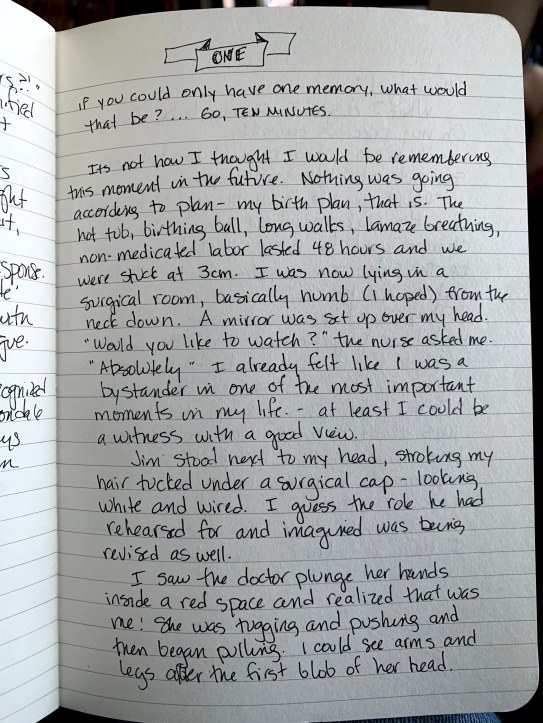 ONE
If you could only have one memory, what would
that be? ... Go, TEN MINUTES.
Its not how I thought I would be remembering
this moment in the future. Nothing was going
according to plan - my birth plan, that is. The
hot tub, birthing ball, long walks, lamaze breathing,
non-medicated labor lasted 48 hours and we
were stuck at 3cm. I was now lying in a
surgical room, basically numb (I hoped) from the
neck down. A mirror was set up over my head.
"Would you like to watch?" the nurse asked me.
"Absolutely" I already felt like I was a
bystander in one of the most important
moments in my life. - at least I could be
a witness with a good view.
Jim stood next to my head, stroking my
hair tucked under a surgical cap - looking
white and wired. I guess the role he had
rehearsed for and imagined was being
revised as well.
I saw the doctor plunge her hands
inside a red space and realized that was
me! She was tugging and pushing and
then began pulling. I could see arms and
legs after the first blob of her head.